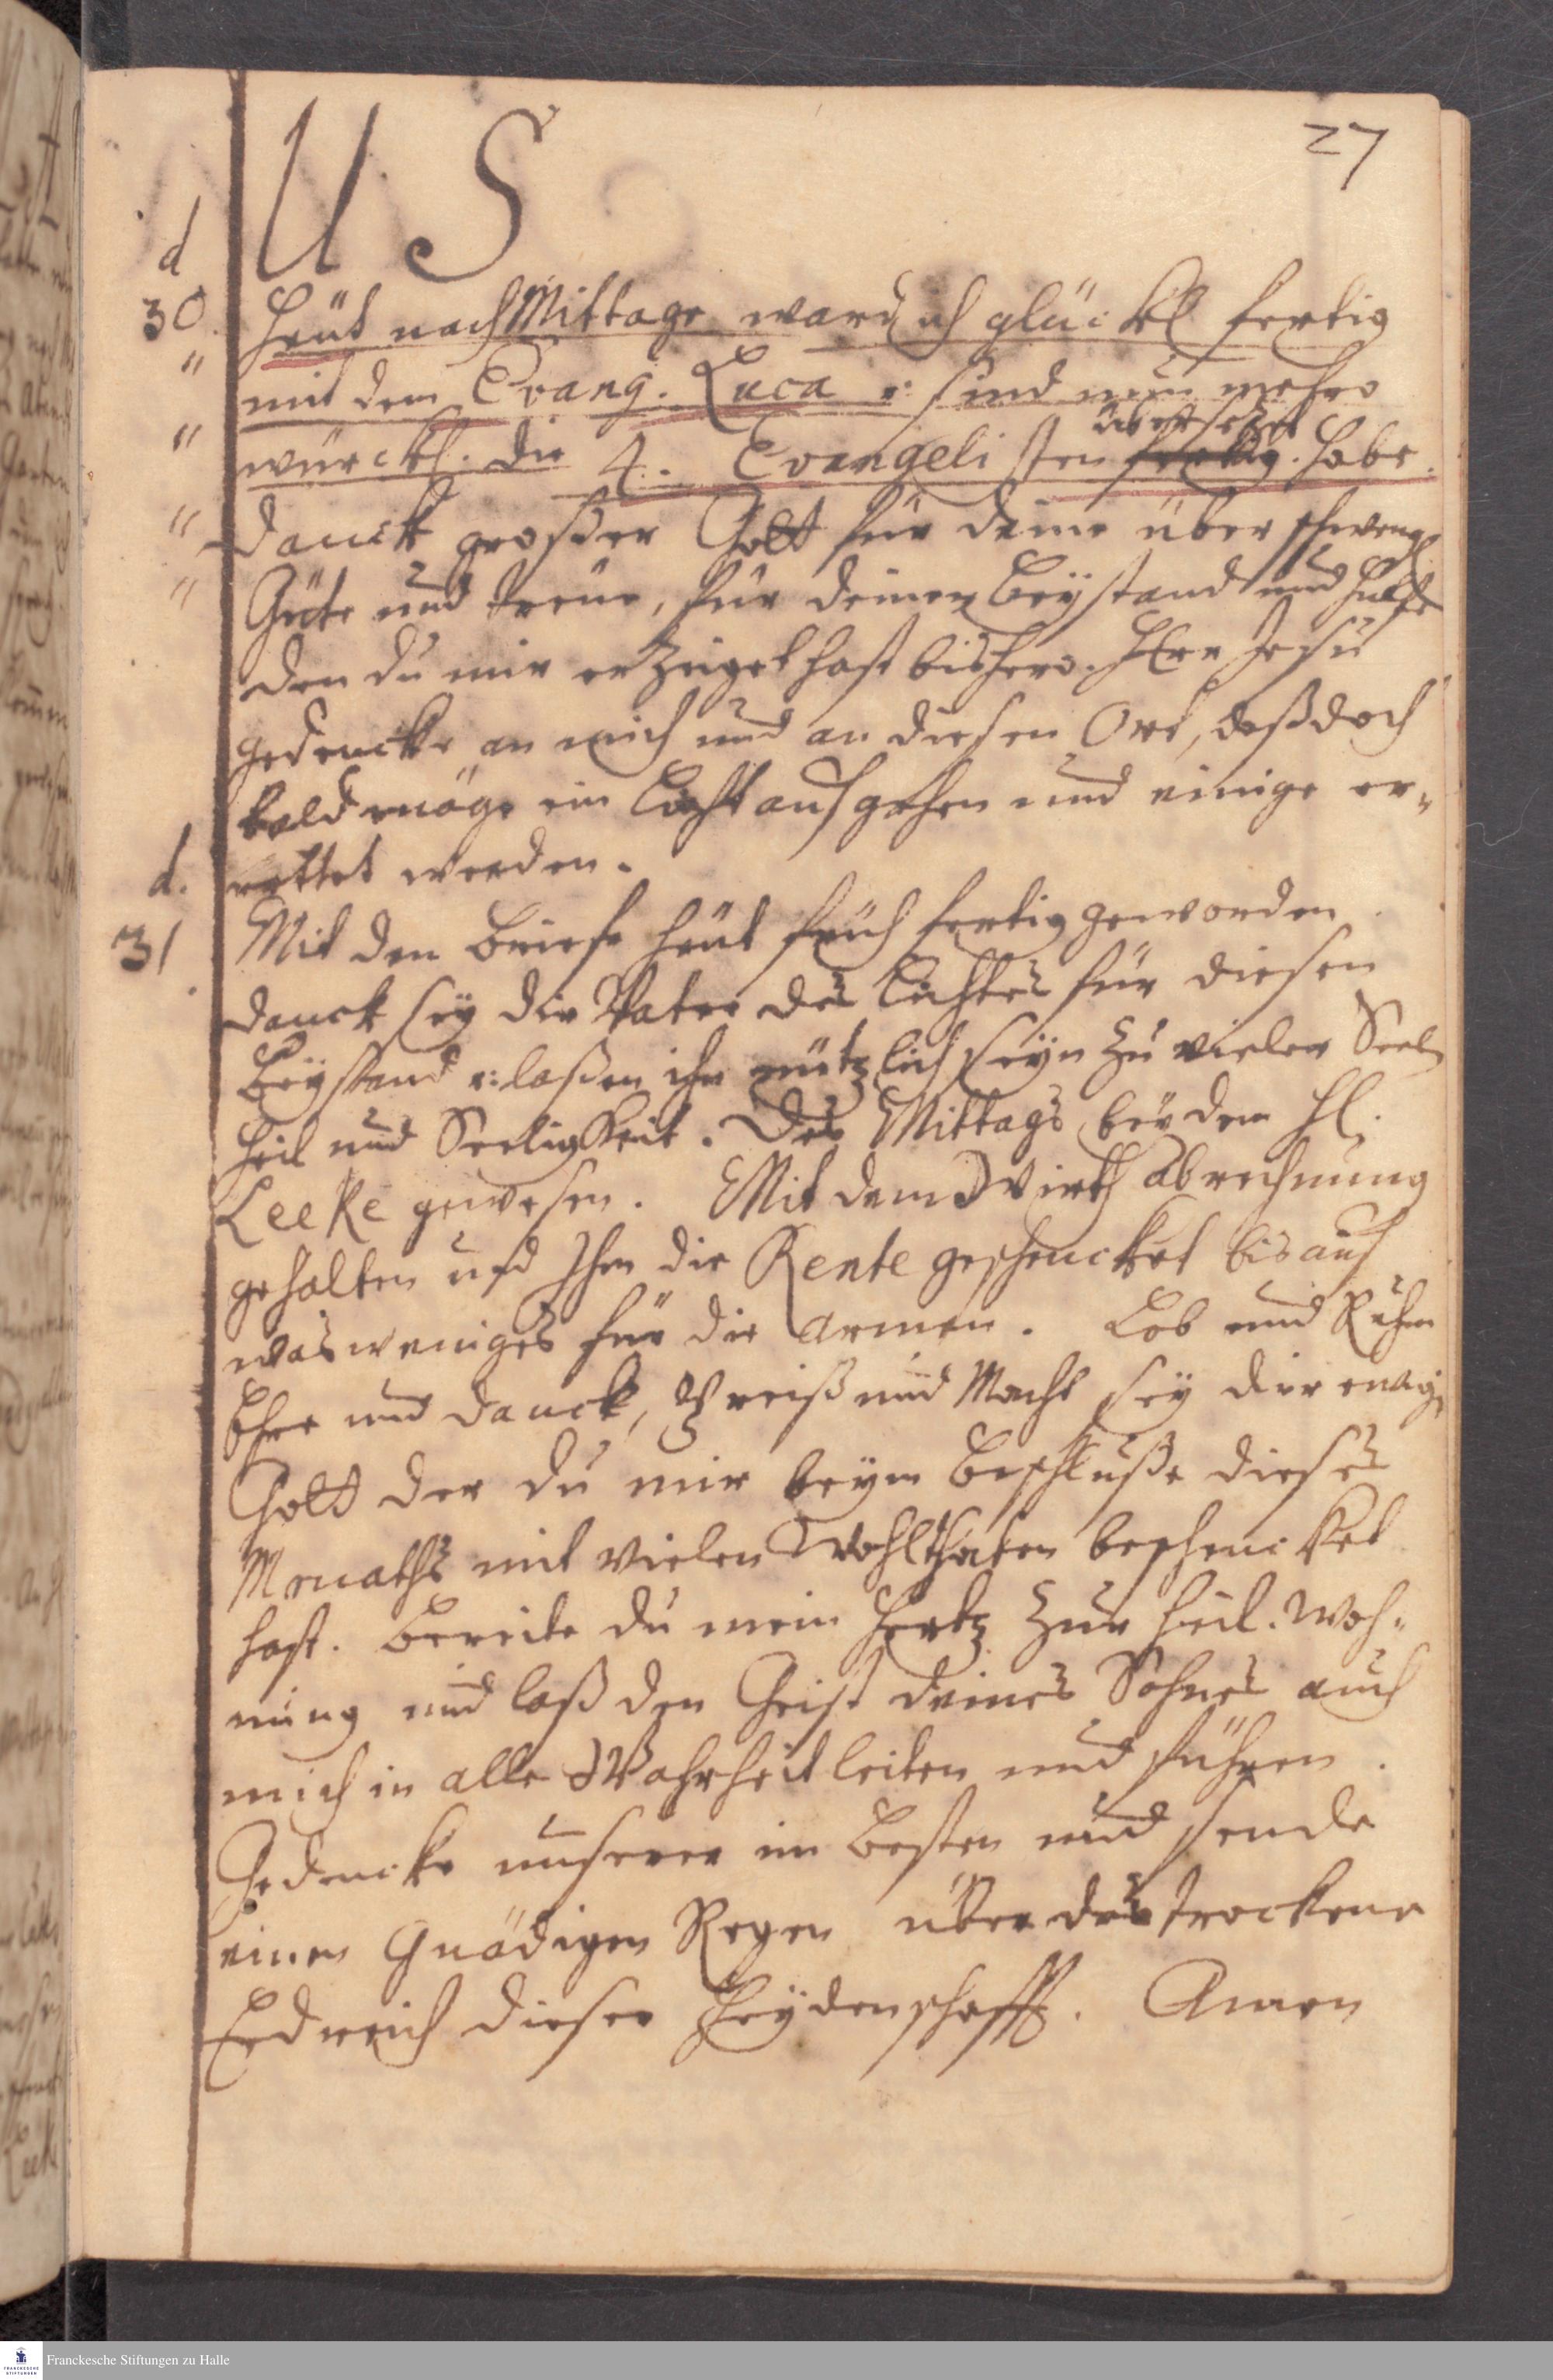 27
U S
d
30. Heüt nach Mittage ward ich glückl fertig
" mit dem Evang. Luca u: sind nun mehro
übersetzt
" würckl. die 4. Evangelisten fertig. habe.
" danck großer Gott für deine überschwengl
" Güte und treüe, für deinen beystand und hülfe
den du mir erzeiget hast bishero. HErr Jesu
gedencke an mich und an diesen Ort, daß doch
bald möge ein Licht aufgehen und einige er„
d. rettet werden.
31. Mit den briefe heüt früh fertig geworden
danck sey dir Vater des Lichtes für diesen
beystand u: laßen ihn nützlich seyn zu vieler Seel
heil und Seeligkeit. Des Mittags bey dem H.
Leeke gewesen. Mit dem Wirth abrechnung
gehalten und Ihm die Rente geschencket bis auf
was weniges für die armen. Lob und Ruhm
Ehre und danck, Preiß und Macht sey dir ewig
Gott der du mir beym beschluße dieses
Monaths mit vielen Wohlthaten beschencket
hast. bereite du mein Hertz zur heil. Woh„
nung und laß den Geist deines Sohnes auch
mich in alle Wahrheit leiten und führen.
Gedencke unserer im besten und sende
einen Gnädigen Regen über das trockene
Erdreich dieser Heydenschafft. Amen
Franckesche Stiftungen zu Halle